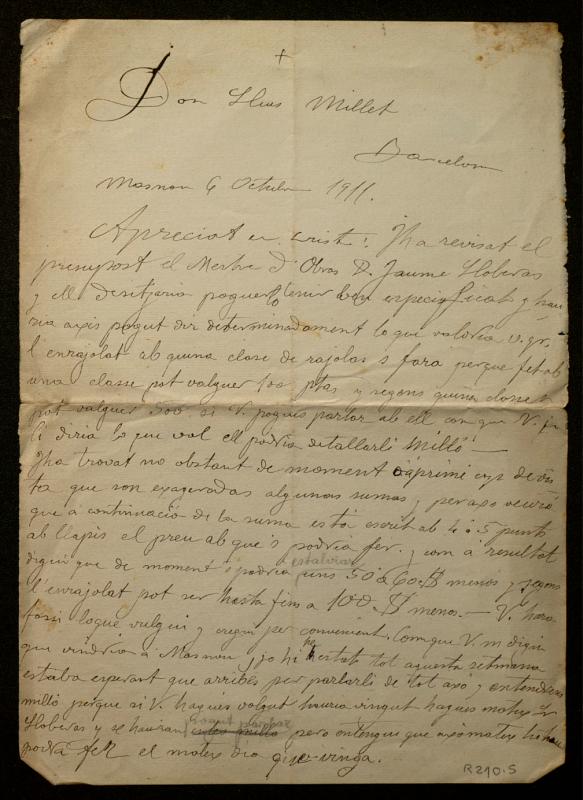 +
Don Lluis Millet
Barcelona
Masnou 6 Octubre 1911.
Apreciat en Crist: Jha revisat el
presupost el Mestre d'Obras D. Jaume Lloberas
y ell desitjaria poguerlo tenir ben especificat y hau
ria axis pogut dir determinadament lo que valdria v. gr.
l enrajolat ab quina clase de rajolas s fará perque fet ab
una classe pot valguer 100 ptas y segons quina classe t
pot valguer 500 si V. pogues parlar ab ell com que V.
li diria lo que val ell podria detallarli milló —
Jha trovat no obstant de moment á primé cop de vis
ta que son exageradas algunas sumas y per axo veurá
que á continuació de la suma está escrit ab 4 ó 5 punts
ab llapis el preu ab que s podria fer. y com a resultat
digui que de moment s podria estalviar uns 50 á 60 $ menos y segons
l'enrajolat pot ser hasta fins a 100 $ menos. — V. hara
fassi loque vulgui y cregui per convenient. Com que V. m digué
que vindria á Masnou y jo hi he estat tot aquesta setmana
estaba esperant que arribés per parlarli de tot axó y entendrens
milló perque si V. hagués volgut hauria vingut hagues mateix en
Lloberas y se hauran pogut parlar pero entengui que aixó mateix hi hau
podrá fer el mateix dia que vinga.
R210.S